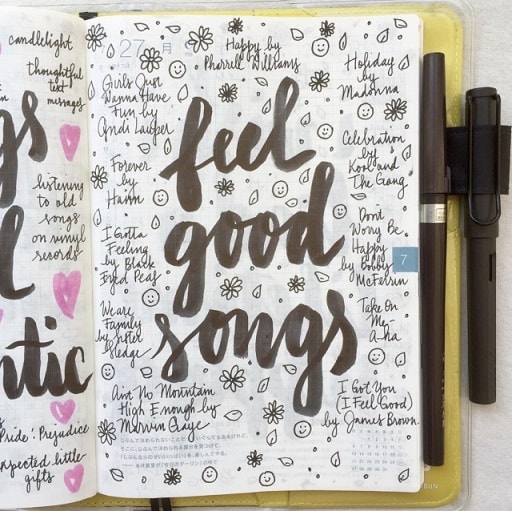 candlelight
thoughtful
text
messages
gs
listening
to old
songs
on vinyl
records
l
ntic
Pride & Prejudice
unexpected little
gifts
27 月
Happy by
Pharrell Williams
Girls Just
Wanna Have
Fun by
Cyndi Lauper
Holiday
by
Madonna
feel
good
songs
Forever
by
Haim
Celebration
by
Kool and
The Gang
I Gotta
Feeling
by Black
Eyed Peas
Dont
Worry Be
Happy
by Bobby
McFerrin
7
We are
Family
by Sister
Sledge
Take On
Me -
A-ha
Aint No Mountain
High Enough by
Marvin Gaye
I Got You
(I Feel Good)
by James Brown